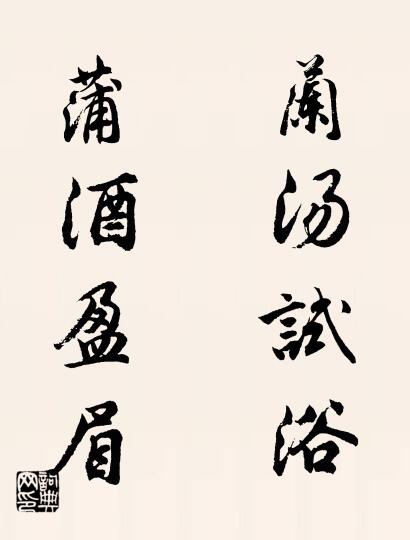 蘭汤試浴
蒲酒盈眉
詞典网印